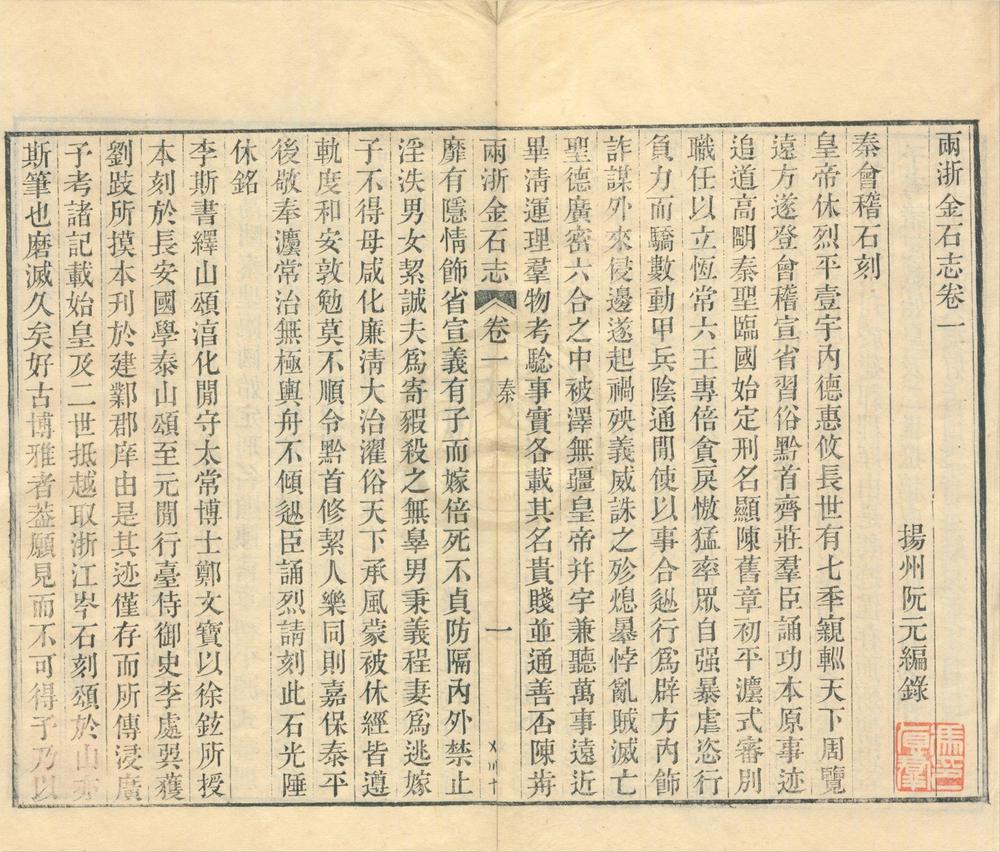 兩浙金石志卷一
揚州阮元編錄
秦會稽石刻
皇帝休烈平壹宇內德惠攸長世有七季窺輒天下周覽
遠方遂登會稽宣省習俗黔首齊莊羣臣誦功本原事迹
追道高朙秦聖臨國始定刑名顯陳舊章初平灋式審別
職任以立恆常六王專倍貪戾慠猛率眾自强暴虐恣行
負力而驕數動甲兵陰通閒使以事合逊行爲辟方內飾
詐謀外來侵邊遂起禍殃義威誅之殄熄暴悖亂賊滅亡
聖德廣密六合之中被澤無疆皇帝并宇兼聽萬事遠近
畢清運理羣物考驗事實各載其名貴賤並通善否陳歬
兩浙金石志 卷一 秦 一
靡有隱情飾省宣義有子而嫁倍死不貞防隔內外禁止
淫泆男女絜誠夫爲寄豭殺之無辠男秉義程妻爲逃嫁
子不得母咸化廉淸大治濯俗天下承風蒙被休經皆遵
軌度和安敦勉莫不順令黔首修絜人樂同則嘉保泰平
後敬奉灋常治無極輿舟不傾逊臣誦烈請刻此石光陲
休銘
李斯書繹山頌淯化閒守太常博士鄭文寶以徐鉉所授
本刻於長安國學泰山頌至元閒行臺侍御史李處巽獲
劉跂所摸本刊於建鄴郡庠由是其迹僅存而所傳浸廣
予考諸記載始皇及二世抵越取浙江岑石刻頌於山亦
斯筆也磨滅久矣好古博雅者葢願見而不可得予乃以